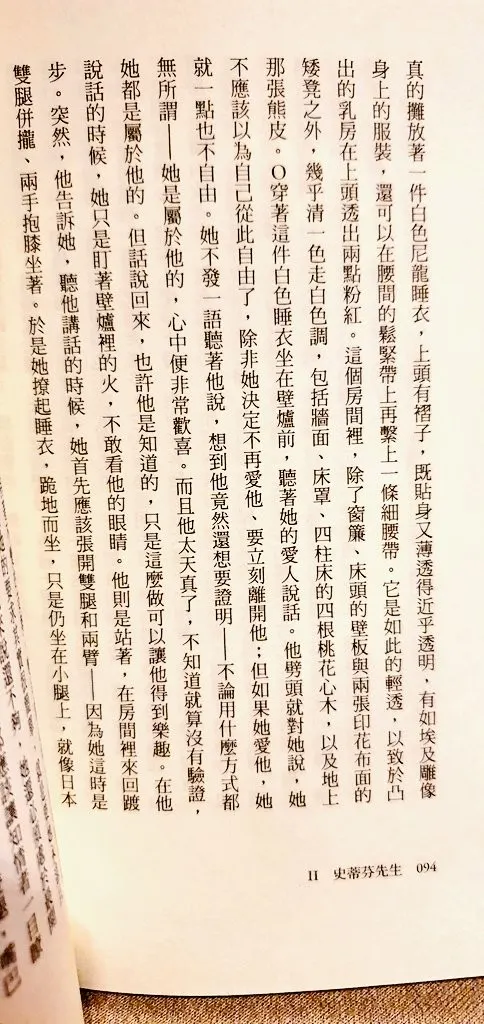 真的攤放著一件白色尼龍睡衣，上頭有褶子，既貼身又薄透得近乎透明，有如埃及雕像
身上的服裝，還可以在腰間的鬆緊帶上再繫上一條細腰帶。它是如此的輕透，以致於凸
出的乳房在上頭透出兩點粉紅。這個房間裡，除了窗簾、床頭的壁板與兩張印花布面的
矮凳之外，幾乎清一色走白色調，包括牆面、床罩、四柱床的四根桃花心木，以及地上
那張熊皮。O穿著這件白色睡衣坐在壁爐前，聽著她的愛人說話。他劈頭就對她說，她
不應該以為自己從此自由了，除非她決定不再愛他、要立刻離開他；但如果她愛他，她
就一點也不自由。她不發一語聽著他說，想到他竟然還想要證明——不論用什麼方式都
無所謂——她是屬於他的，心中便非常歡喜。而且他太天真了，不知道就算沒有驗證，
她都是屬於他的。但話說回來，也許他是知道的，只是這麼做可以讓他得到樂趣。在他
說話的時候，她只是盯著壁爐裡的火，不敢看他的眼睛。他則是站著，在房間裡來回踱
步。突然，他告訴她，聽他講話的時候，她首先應該張開雙腿和兩臂——因為她這時是
雙腿併攏、兩手抱膝坐著。於是她撩起睡衣，跪地而坐，只是仍坐在小腿上，就像日本
II 史蒂芬先生 094